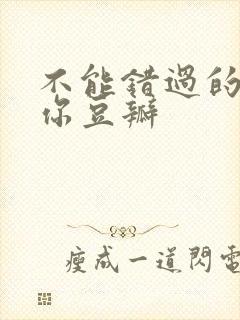 不能錯過的
你豆瓣
瘦成一道閃電